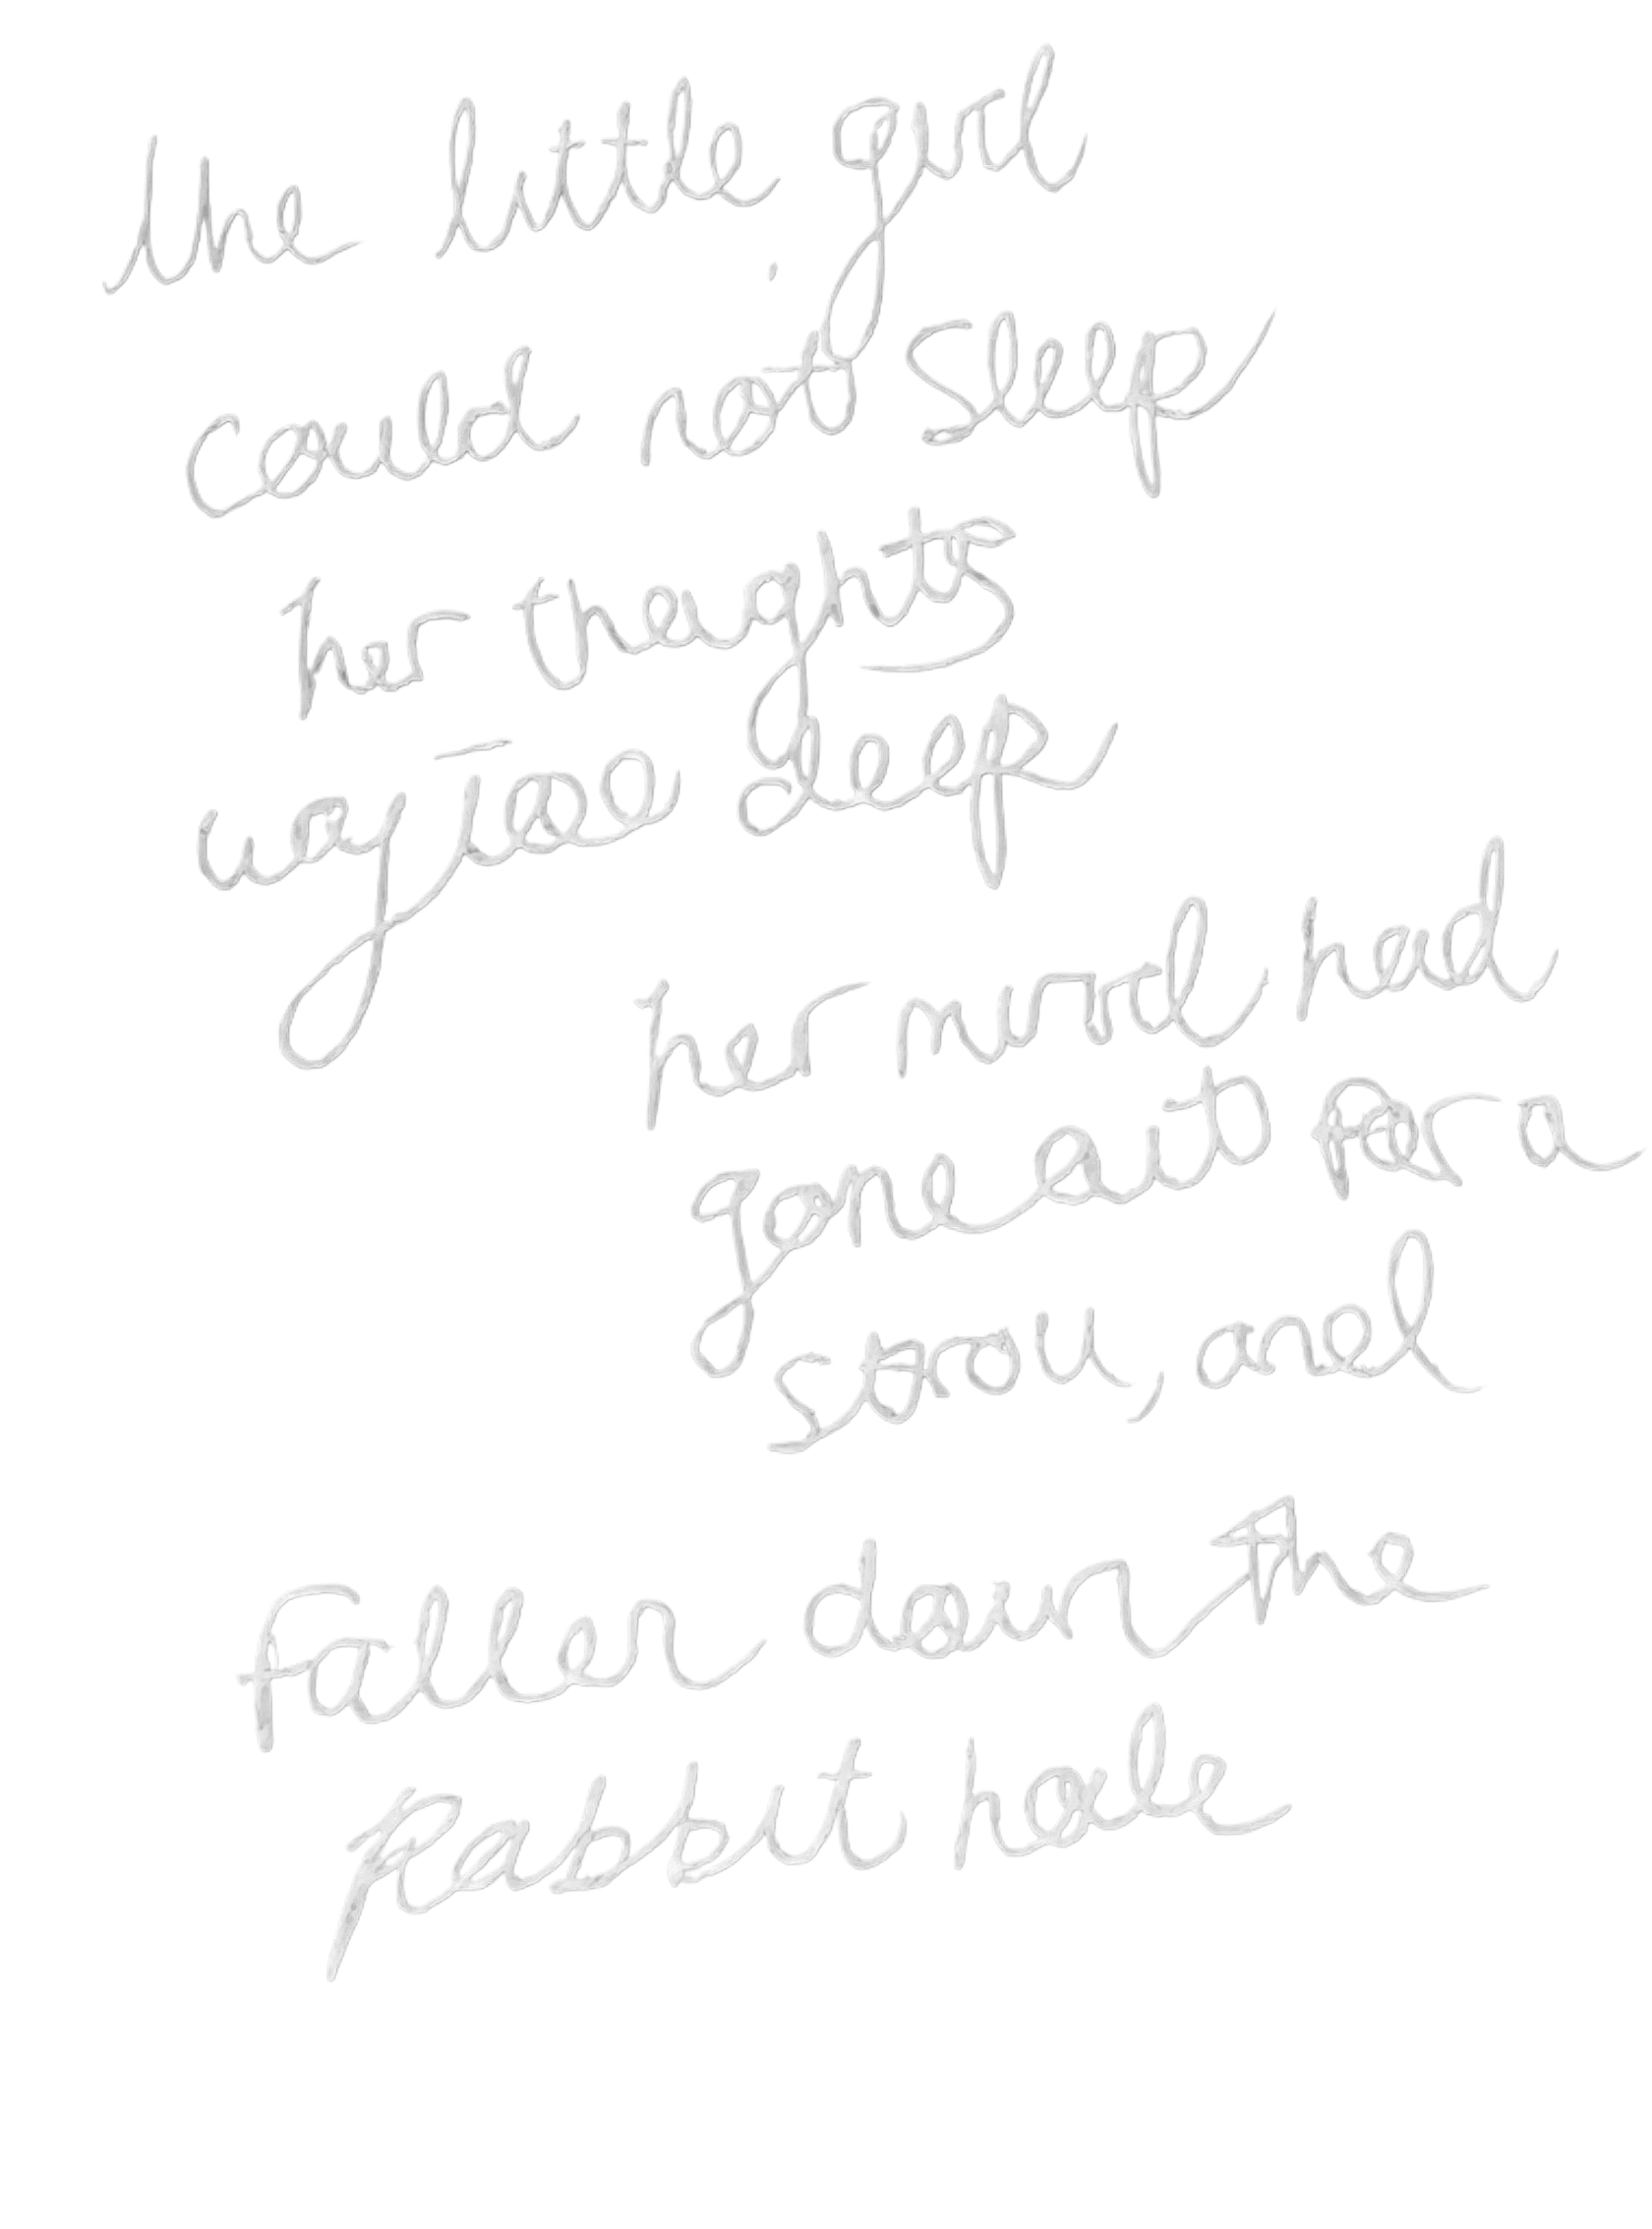 the little girl
could not sleep
her thoughts
way too deep
her mind had
gone out for a
stroll, and
fallen down the
Rabbit hole